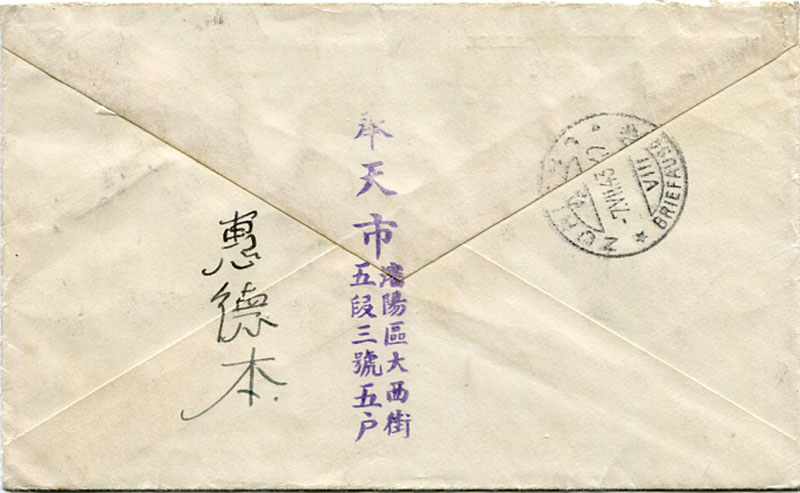 奉天市
瀋陽區大西街
五段三號五户
惠德本
BRIEFAUSG
VIII
-7.VII.43